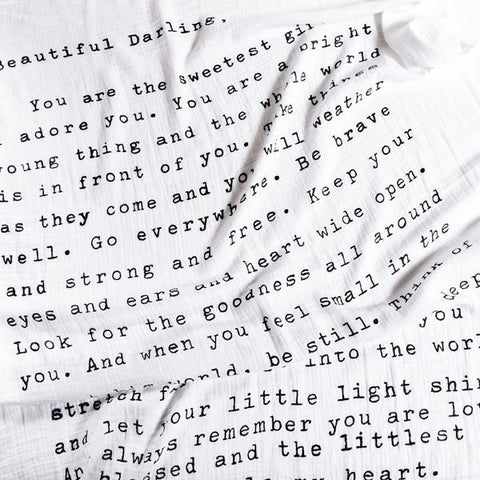 Beautiful Darling,
You are the sweetest
adore you. You are a bright
young thing and the whole world
is in front of you. Take things
as they come and you will weather
well. Go everywhere. Be brave
and strong and free. Keep your
eyes and ears and heart wide open.
Look for the goodness all around
you. And when you feel small in the
world, be still. Think of
deep
you
stretch into the world
and let your little light shine
always remember you are
and the littlest
my heart.